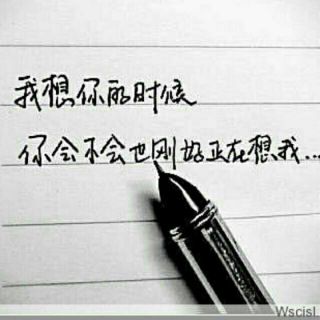 我想你的时候
你会不会也刚好正在想我...
Wscisl